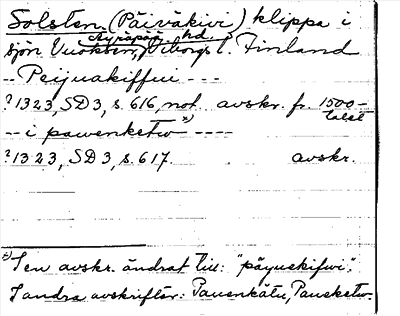 Solsten (Päiväkivi) klippa i
Äyräpää hd.
sjön Vuoksen, Viborgs l. Finland
-- Peijuakiffui ---
?1323, SD3, s. 616, not. avskr. fr. 1500-
talet
-- i pauenketw x) ----
?1323, SD3, s. 617. avskr.
x) I en avskr. ändrat till: "päyuekifwi".
I andra avskrifter: Pauenkätu, Paueketw.